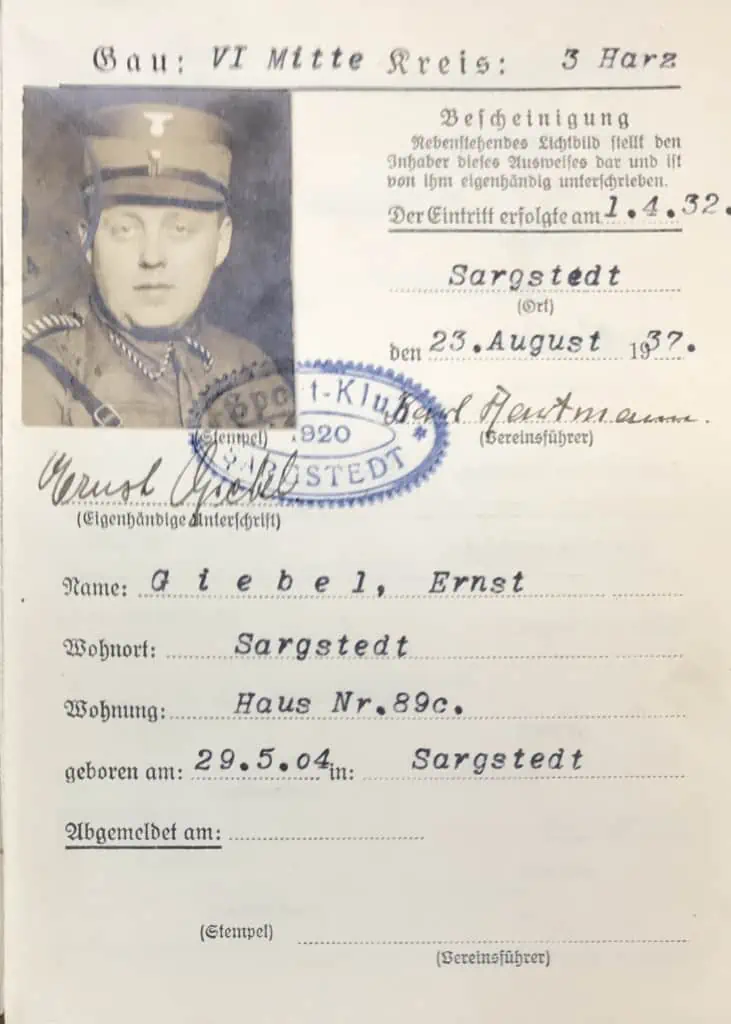 Gau: VI Mitte Kreis: 3 Harz
Bescheinigung
Nebenstehendes Lichtbild stellt den
Inhaber dieses Ausweises dar und ist
von ihm eigenhändig unterschrieben.
Der Eintritt erfolgte am 1.4.32.
Sargstedt
(Ort)
den 23.August 1937.
Sport-Klub
1920
SARGSTEDT
(Stempel)
Karl Hartmann.
(Vereinsführer)
Ernst Giebel
(Eigenhändige Unterschrift)
Name: Giebel, Ernst
Wohnort: Sargstedt
Wohnung: Haus Nr.89c.
geboren am: 29.5.04 in: Sargstedt
Abgemeldet am:
(Stempel)
(Vereinsführer)